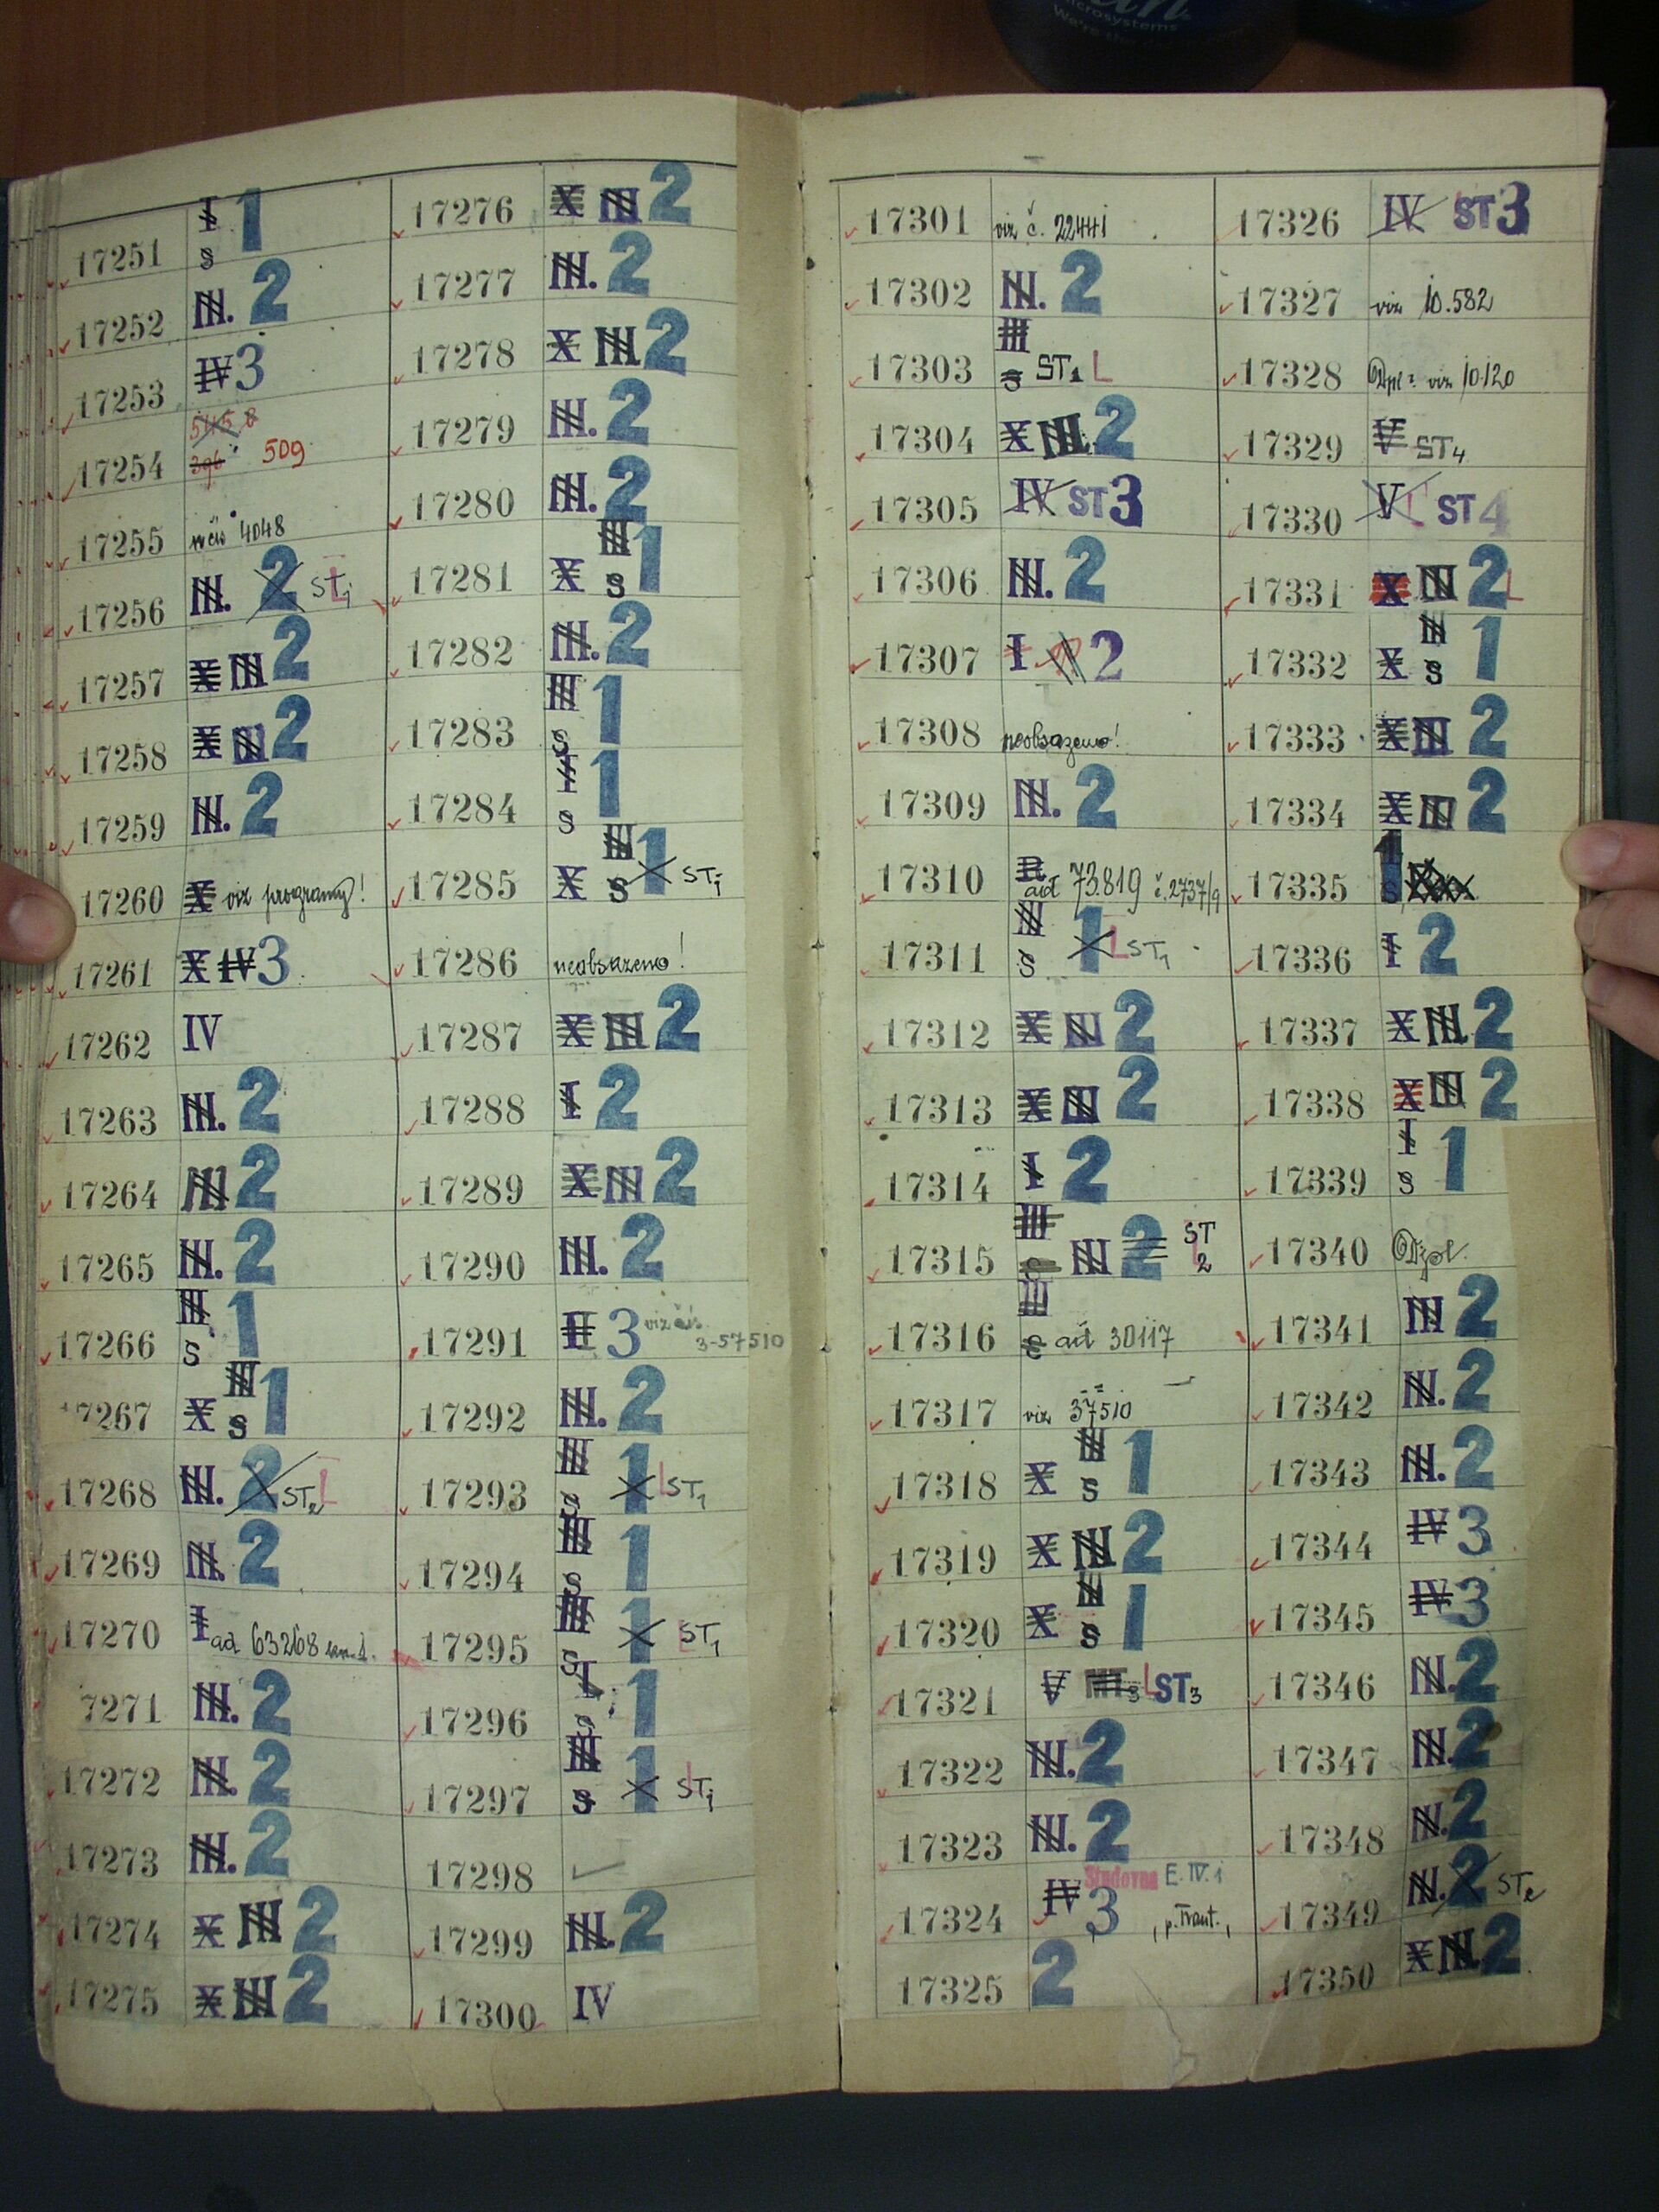 microsystems
17251 I S 1
17252 III. 2
17253 IV 3
17254 396 509
17255 4048
17256 III. 2 ST1 L
17257 X III 2
17258 X III 2
17259 III. 2
17260 X viz programy!
17261 X IV 3
17262 IV
17263 III. 2
17264 III 2
17265 III. 2
17266 III S 1
7267 X III S 1
17268 III. 2 ST2 L
17269 III. 2
17270 I ad 63268
7271 III. 2
17272 III. 2
17273 III. 2
17274 X III 2
17275 X III 2
17276 X III 2
17277 III. 2
17278 X III 2
17279 III. 2
17280 III. 2
17281 X III S 1
17282 III. 2
17283 III S 1
17284 I S 1
17285 X III S 1 ST1
17286 neobsazeno!
17287 X III 2
17288 I 2
17289 X III 2
17290 III. 2
17291 3 viz čís. 3-57510
17292 III. 2
17293 III S 1 L ST1
17294 III S 1
17295 III S 1 L ST1
17296 I S 1
17297 III S 1 L ST1
17298
17299 III. 2
17300 IV
17301 viz č. 22441
17302 III. 2
17303 III S ST1 L
17304 X III. 2
17305 IV ST 3
17306 III. 2
17307 I 2
17308 neobsazeno!
17309 III. 2
17310 ad 73.819 č.2737/9
17311 III S 1 L ST1
17312 X III 2
17313 X III 2
17314 I 2
17315 III S III 2 ST 2
17316 III S ad 30117
17317 viz 37510
17318 X III S 1
17319 X III 2
17320 X III S 1
17321 V L ST3
17322 III. 2
17323 III. 2
17324 IV 3 Studovna E.IV.1 p. Traut.
17325 2
17326 IV ST 3
17327 viz 10.582
17328 viz 10120
17329 V ST4
17330 V L ST 4
17331 X III 2 L
17332 X III S 1
17333 X III 2
17334 X III 2
17335 1 S
17336 I 2
17337 X III. 2
17338 X III 2
17339 I S 1
17340
17341 III 2
17342 III. 2
17343 III. 2
17344 IV 3
17345 IV 3
17346 III. 2
17347 III. 2
17348 III. 2
17349 III. 2 ST2
17350 X III. 2